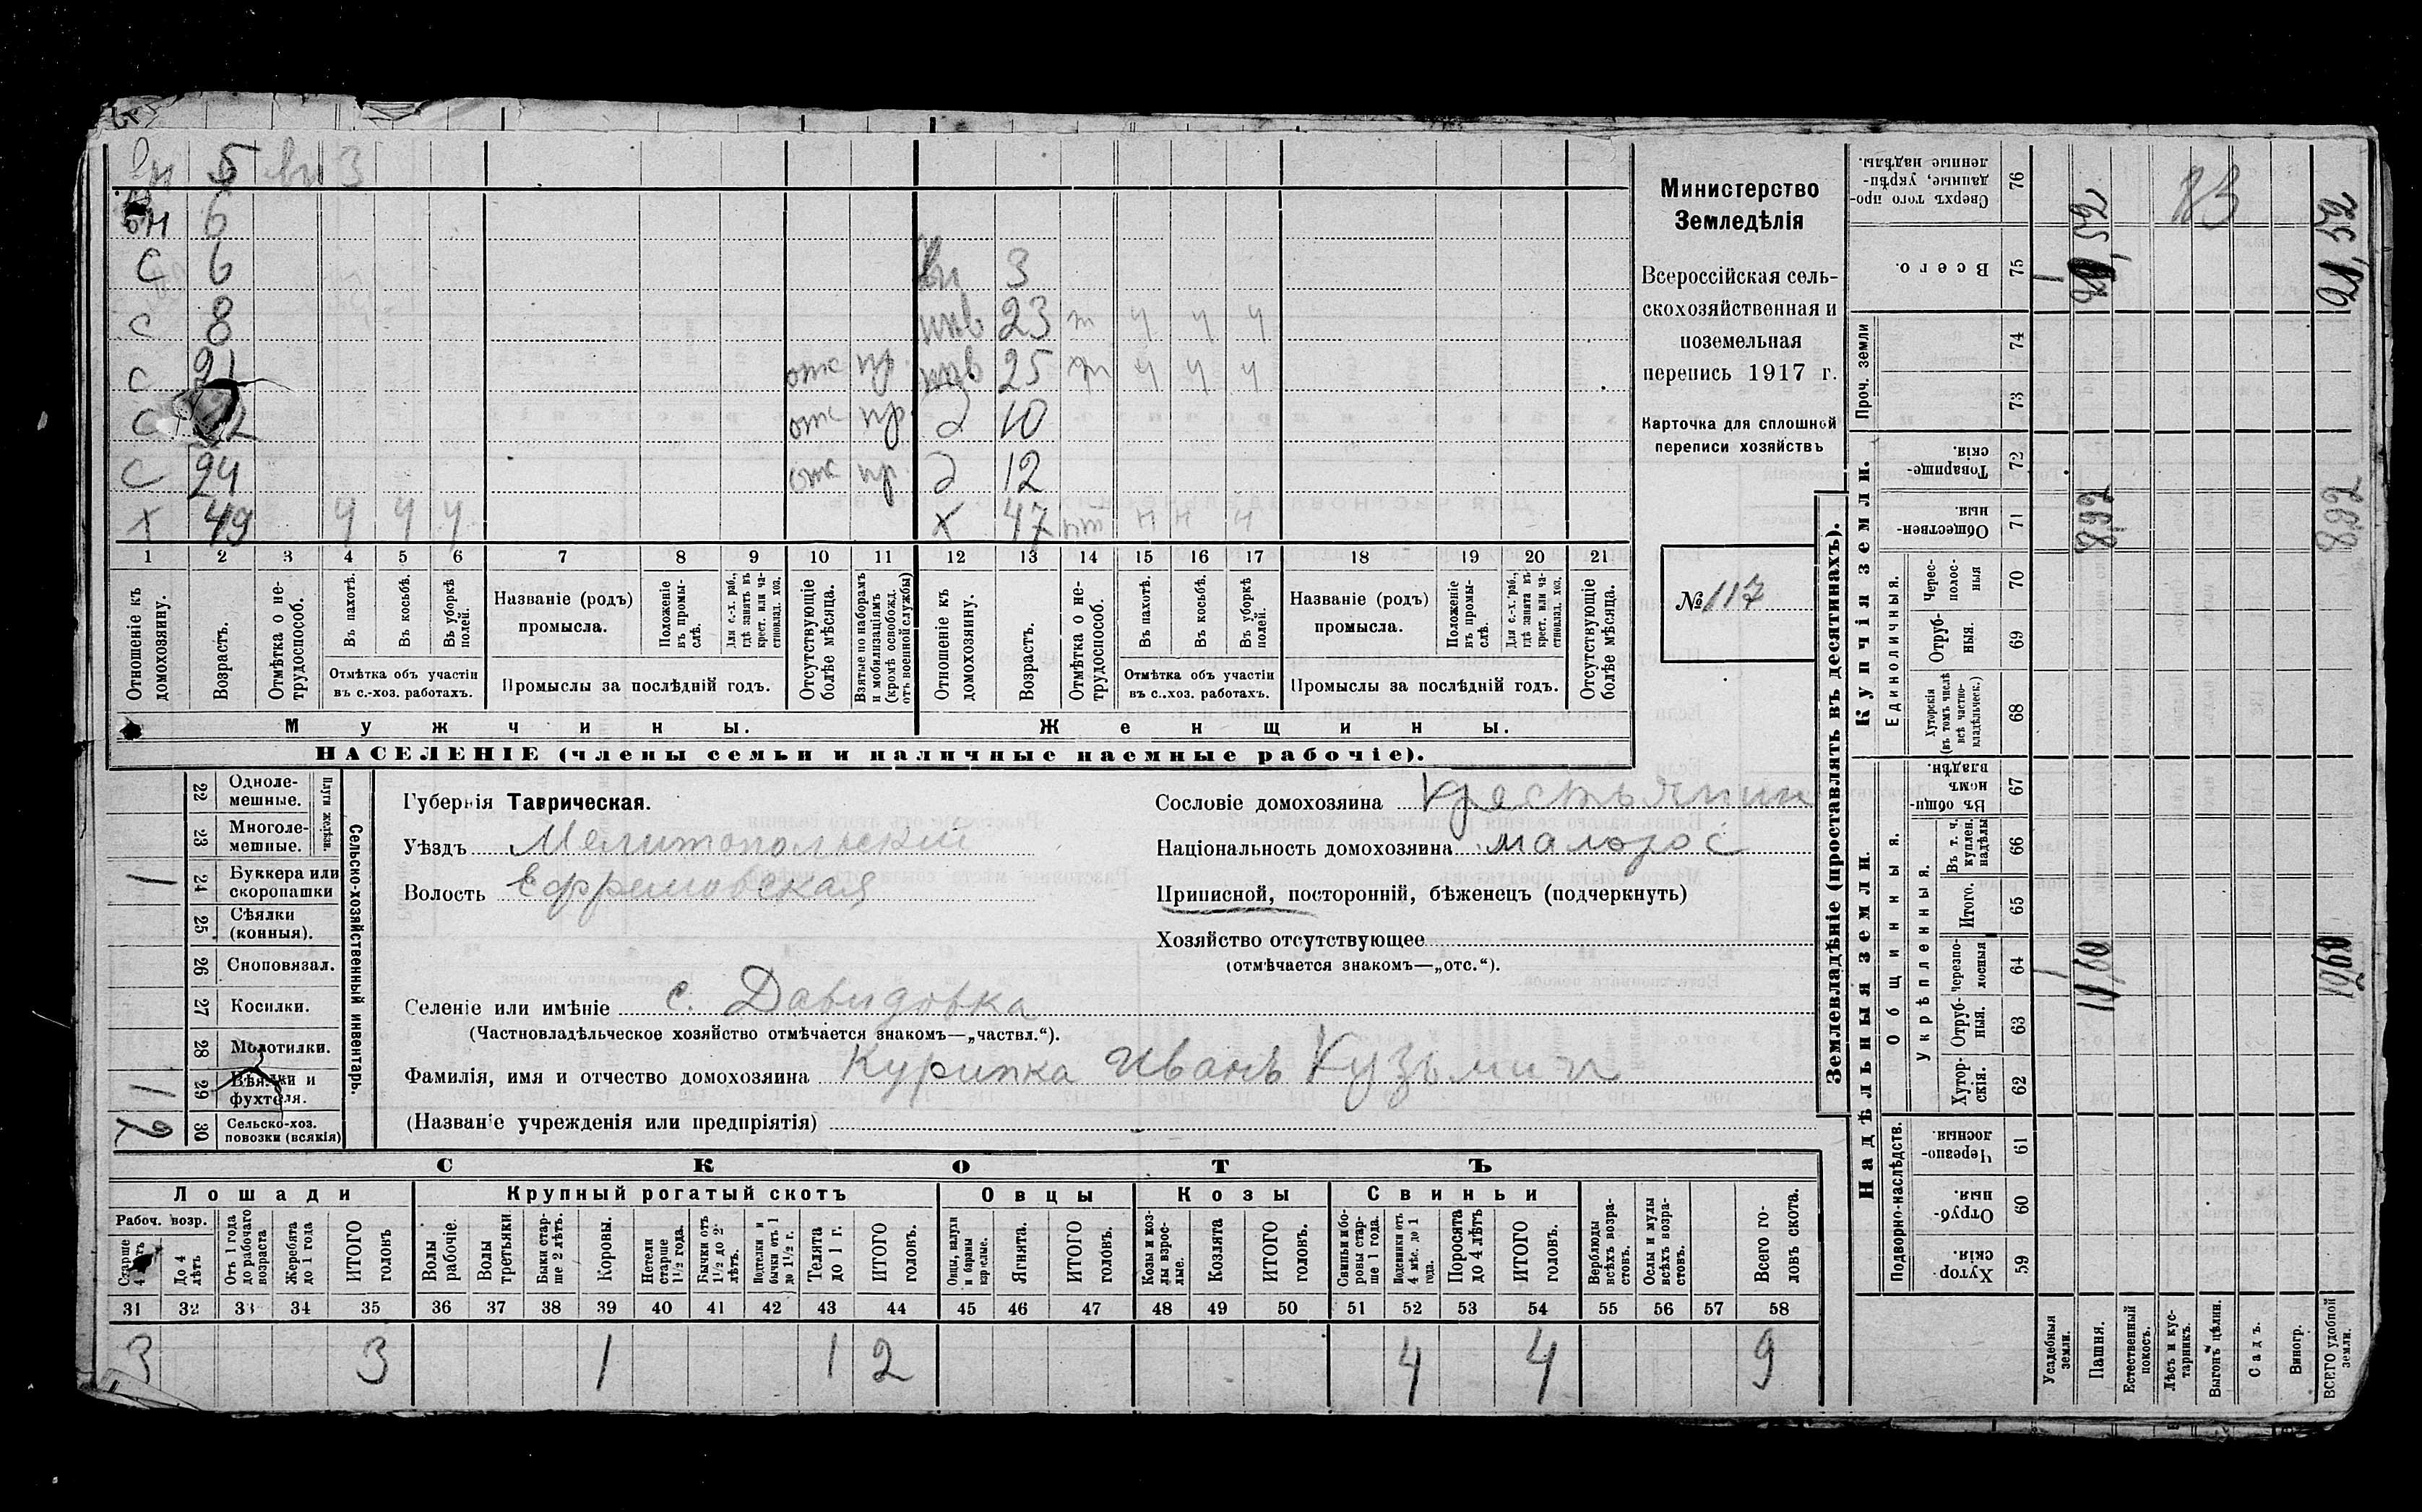 вн 5 вн 3
вн 6
с 6 вн 3
с 8 инв 23 п ч ч ч
с 21 отс пр. инв 25 п ч ч ч
с отс пр. д 10
с 24 отс пр. д 12
х 49 ч ч ч х 47 пт н н ч
1 2 3 4 5 6 7 8 9 10 11 12 13 14 15 16 17 18 19 20 21
Отношеніе къ домохозяину.
Возрастъ.
Отмѣтка о не-трудоспособ.
Въ пахотѣ.
Въ косьбѣ.
Въ уборкѣ полей.
Отмѣтка объ участіи въ с.-хоз. работахъ.
Названіе (родъ) промысла.
Положеніе въ промы-слѣ.
Для с.-х. раб., гдѣ занятъ въ крест. или ча-стновлад. хоз.
Промыслы за послѣдній годъ.
Отсутствующіе болѣе мѣсяца.
Взятые по наборамъ и мобилизаціямъ (кромѣ освобожд. отъ военной службы)
Отношеніе къ домохозяину.
Возрастъ.
Отмѣтка о не-трудоспособ.
Въ пахотѣ.
Въ косьбѣ.
Въ уборкѣ полей.
Отмѣтка объ участіи въ с.-хоз. работахъ.
Названіе (родъ) промысла.
Положеніе въ промы-слѣ.
Для с.-х. раб., гдѣ занятъ въ крест. или ча-стновлад. хоз.
Промыслы за послѣдній годъ.
Отсутствующіе болѣе мѣсяца.
Мужчины. Женщины.
НАСЕЛЕНІЕ (члены семьи и наличные наемные рабочіе).
Министерство
Земледѣлія
Всероссійская сель-
скохозяйственная и
поземельная
перепись 1917 г.
Карточка для сплошной
переписи хозяйствъ
№ 117
Сельско-хозяйственный инвентарь.
Плуги желѣзн.
22 Одноле-мешные.
23 Многоле-мешные.
1 24 Буккера или скоропашки
25 Сѣялки (конныя).
26 Сноповязал.
27 Косилки.
28 Молотилки.
1 29 Вѣялки и фухтеля.
2 30 Сельско-хоз. повозки (всякія)
Губернія Таврическая.
Уѣздъ Мелитопольскій
Волость Ефремовская
Селеніе или имѣніе с. Давидовка
(Частновладѣльческое хозяйство отмѣчается знакомъ—„частвл.“).
Фамилія, имя и отчество домохозяина Курипка Иванъ Кузьмич
(Названіе учрежденія или предпріятія)
Сословіе домохозяина Крестьянин
Національность домохозяина малорос
Приписной, посторонній, бѣженец (подчеркнуть)
Хозяйство отсутствующее
(отмѣчается знакомъ—„отс.“).
СКОТЪ
Лошади Крупный рогатый скотъ Овцы Козы Свиньи
Рабоч. возр.
Старше 4 лѣтъ
До 4 лѣтъ
Отъ 1 года до рабочаго возраста
Жеребята до 1 года
ИТОГО головъ
Волы рабочіе.
Волы третьяки.
Быки стар-ше 2 лѣтъ.
Коровы.
Нетели старше 1½ года.
Бычки отъ 1½ до 2 лѣтъ.
Подтелки и бычки отъ 1 до 1½ г.
Телята до 1 г.
ИТОГО головъ.
Овцы, валухи и бараны взрослые.
Ягнята.
ИТОГО головъ.
Козы и коз-лы взрос-лые.
Козлята
ИТОГО головъ.
Свиньи и бо-ровы стар-ше 1 года.
Подсвинки отъ 4 мѣс. до 1 года.
Поросята до 4 лѣтъ
ИТОГО головъ.
Верблюды всѣхъ возра-стовъ.
Ослы и мулы всѣхъ возра-стовъ.
Всего го-ловъ скота.
31 32 33 34 35 36 37 38 39 40 41 42 43 44 45 46 47 48 49 50 51 52 53 54 55 56 57 58
3 3 1 1 2 4 4 9
Землевладѣніе (проставлять въ десятинахъ).
Надѣльныя земли. Купчія земли.
Прочія земли
Подворно-наслѣдств.
Общинныя.
Укрѣпленныя.
Единоличныя.
Сверхъ того про-данные, укрѣп-ленные надѣлы. 76
Всего. 75
74
73
Товарище-скія. 72
Обществен-ныя. 71
Черес-полос-ныя 70
Отруб-ныя. 69
Хуторскія (въ томъ числѣ всѣ частно-владѣльческ.) 68
Въ общин-номъ владѣн. 67
Въ т. ч. куплен. надѣлы 66
Итого. 65
Черезпо-лосныя 64
Отруб-ныя. 63
Хутор-скія. 62
Черезпо-лосныя. 61
Отруб-ныя. 60
Хутор-скія. 59
Усадебныя земли.
Пашня.
Естественный покосъ.
Лѣсъ и кус-тарникъ.
Выгонъ цѣлин.
Садъ.
Виногр.
ВСЕГО удобной земли.
892
892
83